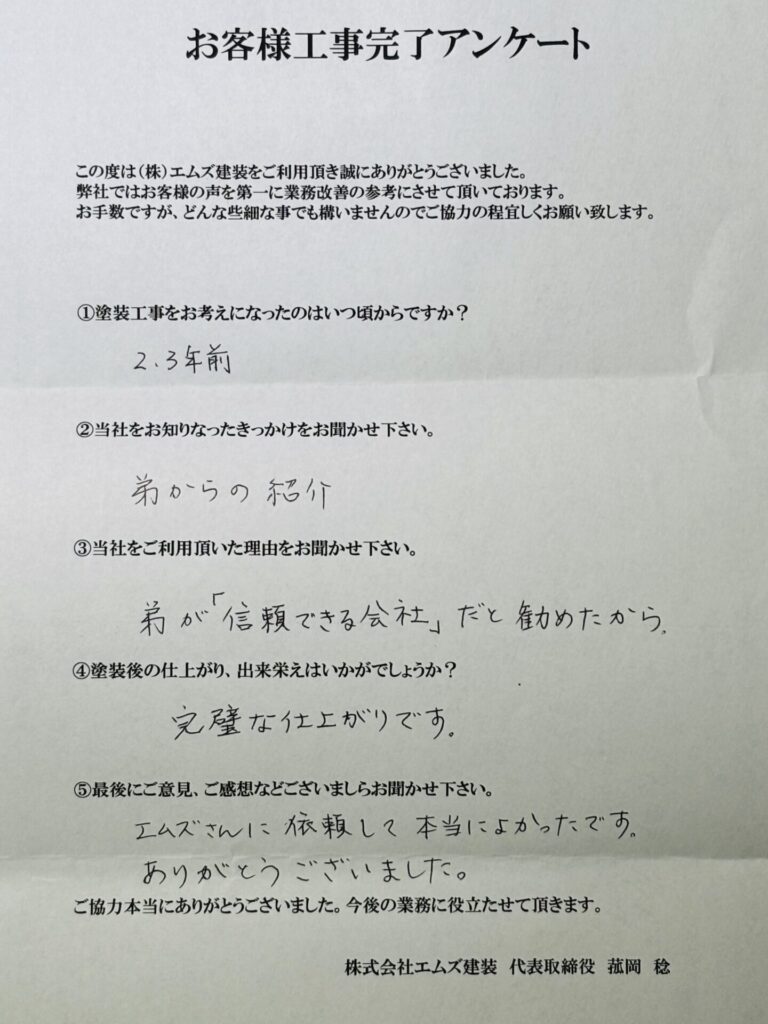 お客様工事完了アンケート
この度は(株)エムズ建装をご利用頂き誠にありがとうございました。
弊社ではお客様の声を第一に業務改善の参考にさせて頂いております。
お手数ですが、どんな些細な事でも構いませんのでご協力の程宜しくお願い致します。
①塗装工事をお考えになったのはいつ頃からですか？
2、3年前
②当社をお知りなったきっかけをお聞かせ下さい。
弟からの紹介
③当社をご利用頂いた理由をお聞かせ下さい。
弟が「信頼できる会社」だと勧めたから。
④塗装後の仕上がり、出来栄えはいかがでしょうか？
完璧な仕上がりです。
⑤最後にご意見、ご感想などございましらお聞かせ下さい。
エムズさんに依頼して本当によかったです。
ありがとうございました。
ご協力本当にありがとうございました。今後の業務に役立たせて頂きます。
株式会社エムズ建装　代表取締役　菰岡　稔